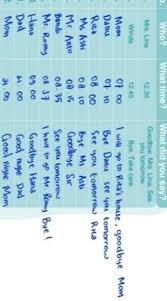 Who? What time? What did you say?
Mrs. Lina 12.35 Goodbye, Mrs. Lina. See
you tomorrow
Winda 12.45 Bye. Take care.
Mom 07 00 I will go to Rita's house, goodbye Mom
Danu 07 10 Bye Danu see you tomorrow
Rita 08 00 see you tomorrow Rita
Bye Ms Asti
Mr Anto 08 10 Goodbye Sir
08 35 see you tomorrow
Mr. Romy 8 37 I have to go Mr. Romy Bye!
Hana Goodbye Hana
Dad 21 00 Good night Dad
Mom 21 00 Good night Mom